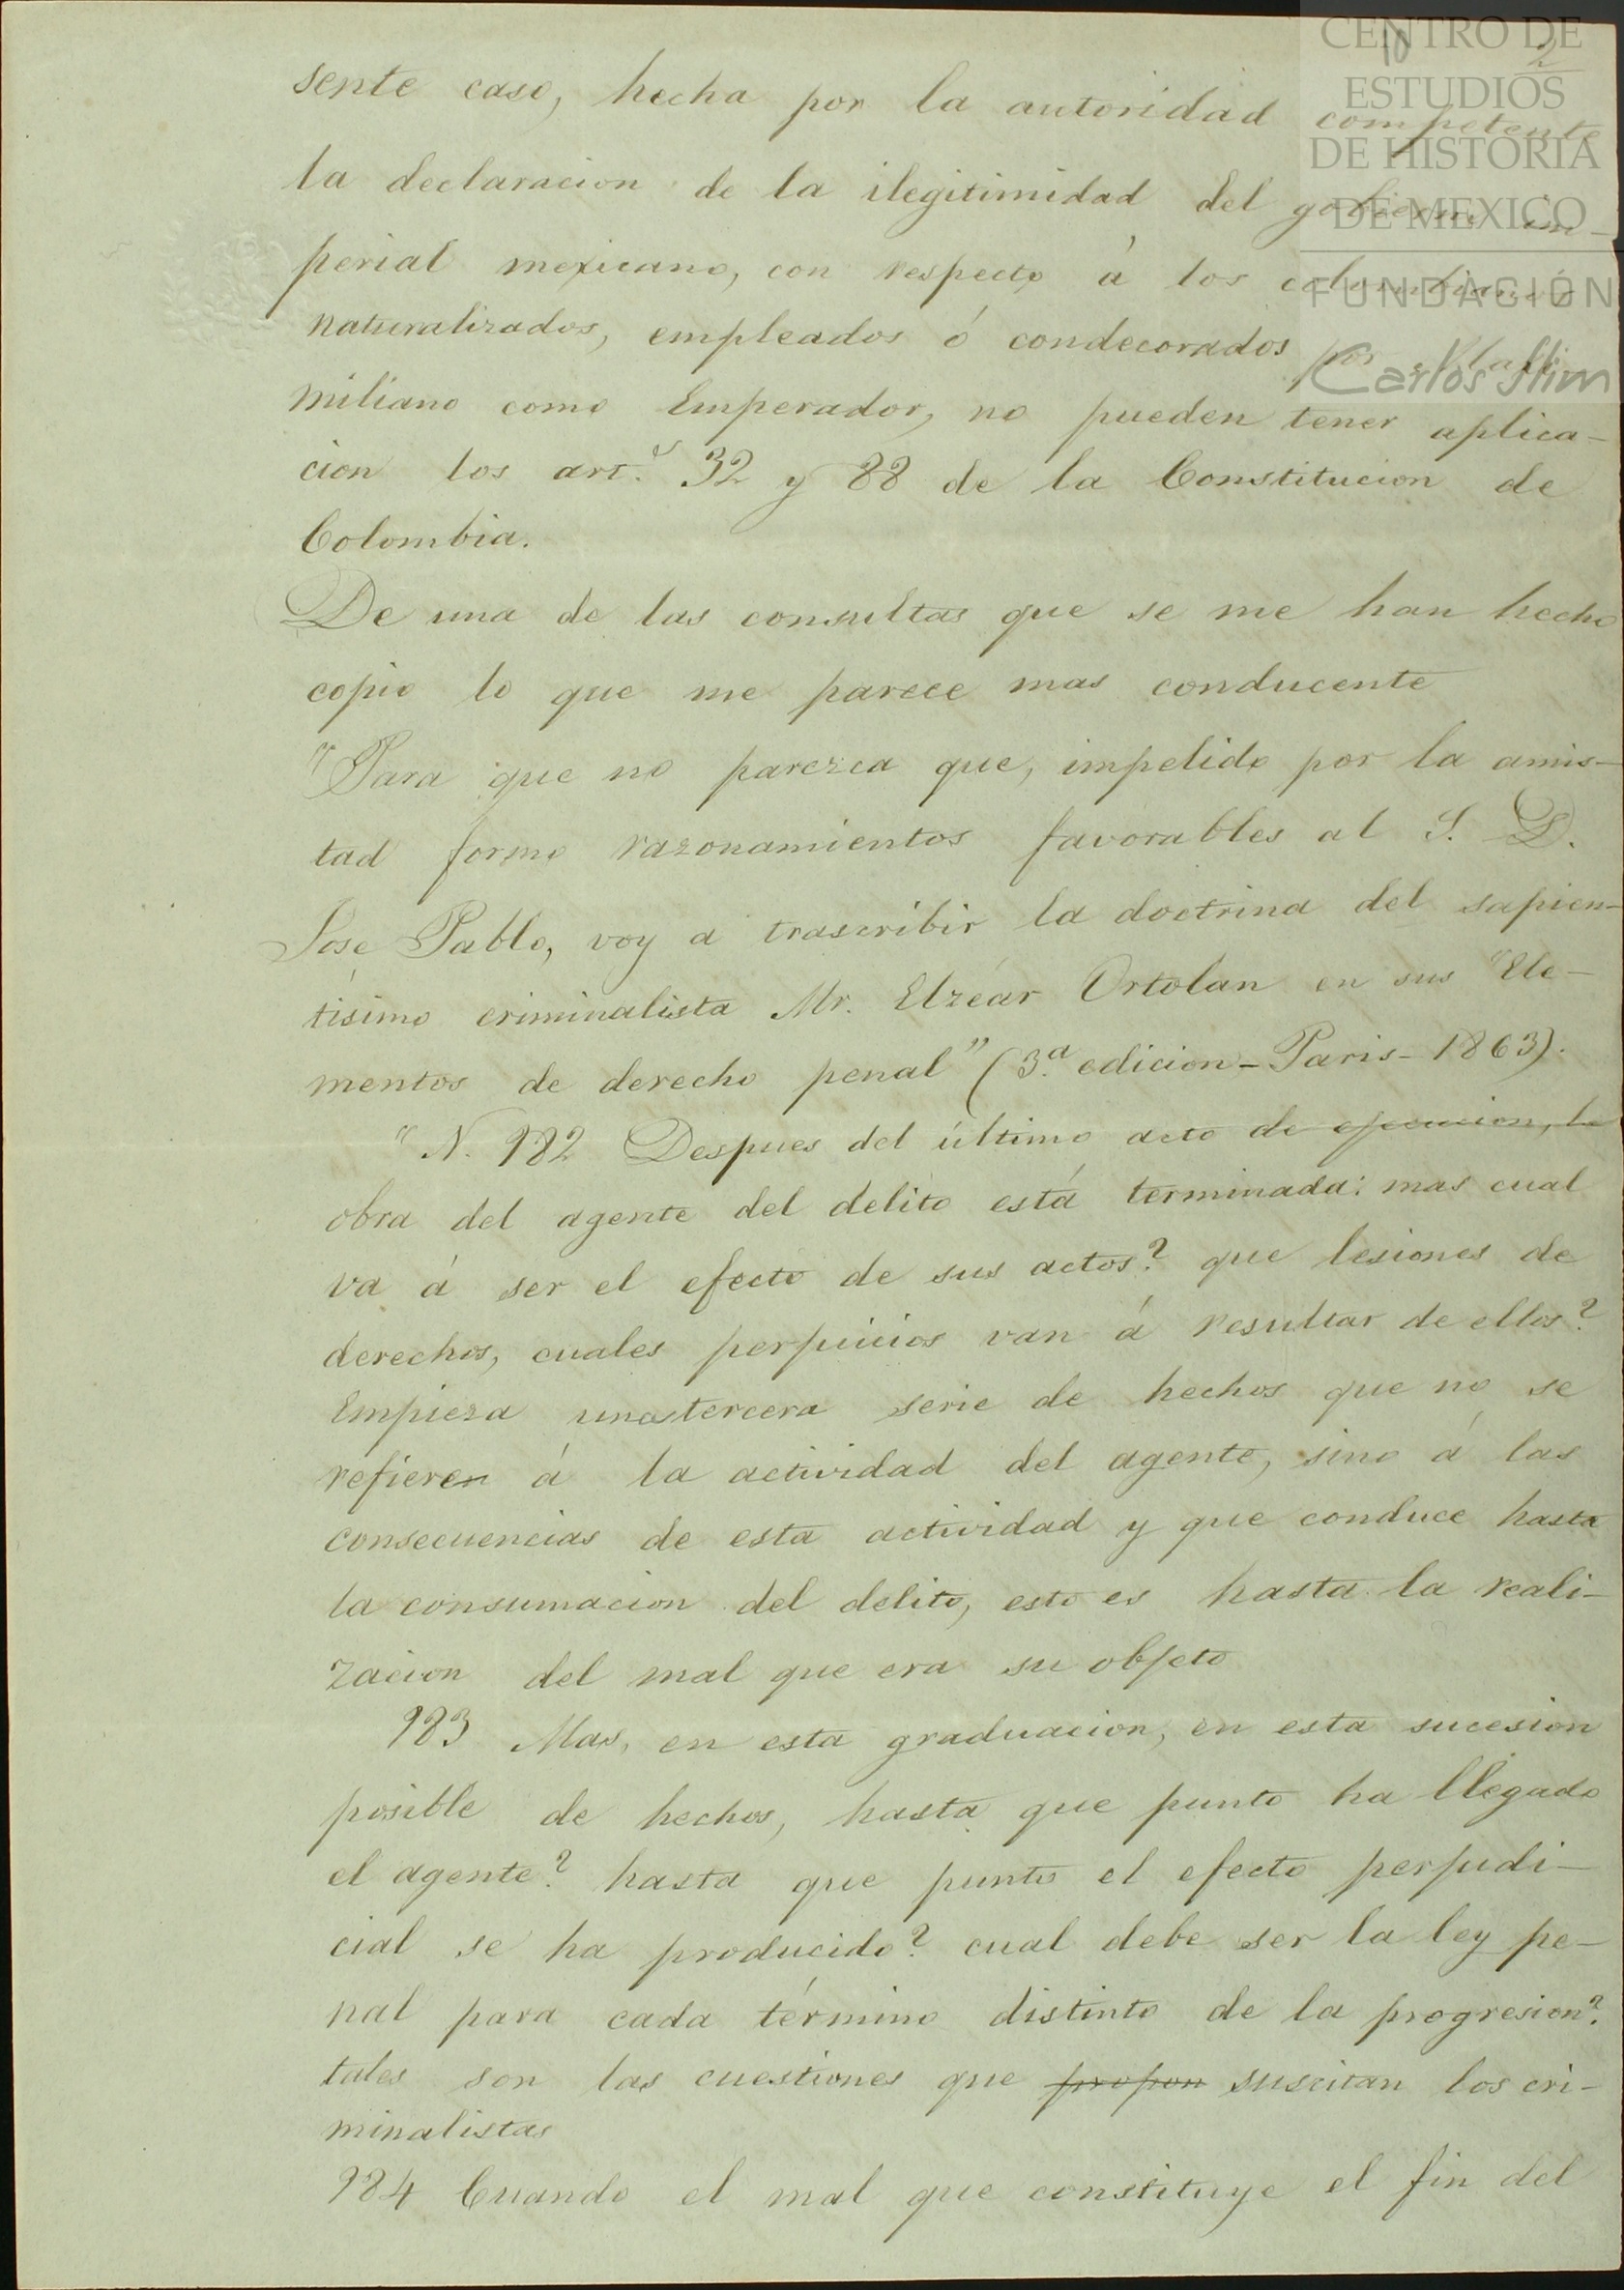 CENTRO DE
ESTUDIOS
DE HISTORIA
DE MEXICO
FUNDACIÓN
Carlos Slim
2
sente caso, hecha por la autoridad competente
la declaracion de la ilegitimidad del gobierno im-
perial mexicano, con respecto á los colombianos
naturalizados, empleados ó condecorados por Maxi-
miliano como Emperador, no pueden tener aplica-
cion los art.s 32 y 88 de la Constitucion de
Colombia.
De una de las consultas que se me han hecho
copio lo que me parece mas conducente
"Para que no parezca que, impelido por la amis-
tad formo razonamientos favorables al S. D.
Jose Pablo, voy a trascribir la doctrina del sapien-
tísimo criminalista Mr. Elzéar Ortolan en sus "Ele-
mentos de derecho penal" (3.a edicion - Paris - 1863).
"N. 982 Despues del último acto de ejecucion, la
obra del agente del delito está terminada: mas cual
va á ser el efecto de sus actos? que lesiones de
derechos, cuales perjuicios van á resultar de ellos?
Empieza una tercera serie de hechos que no se
refieren á la actividad del agente, sino á las
consecuencias de esta actividad y que conduce hasta
la consumacion del delito, esto es hasta la reali-
zacion del mal que era su objeto
983 Mas, en esta graduacion, en esta sucesion
posible de hechos, hasta que punto ha llegado
el agente? hasta que punto el efecto perjudi-
cial se ha producido? cual debe ser la ley pe-
nal para cada término distinto de la progresion?
tales son las cuestiones que propon suscitan los cri-
minalistas
984 Cuando el mal que constituye el fin del